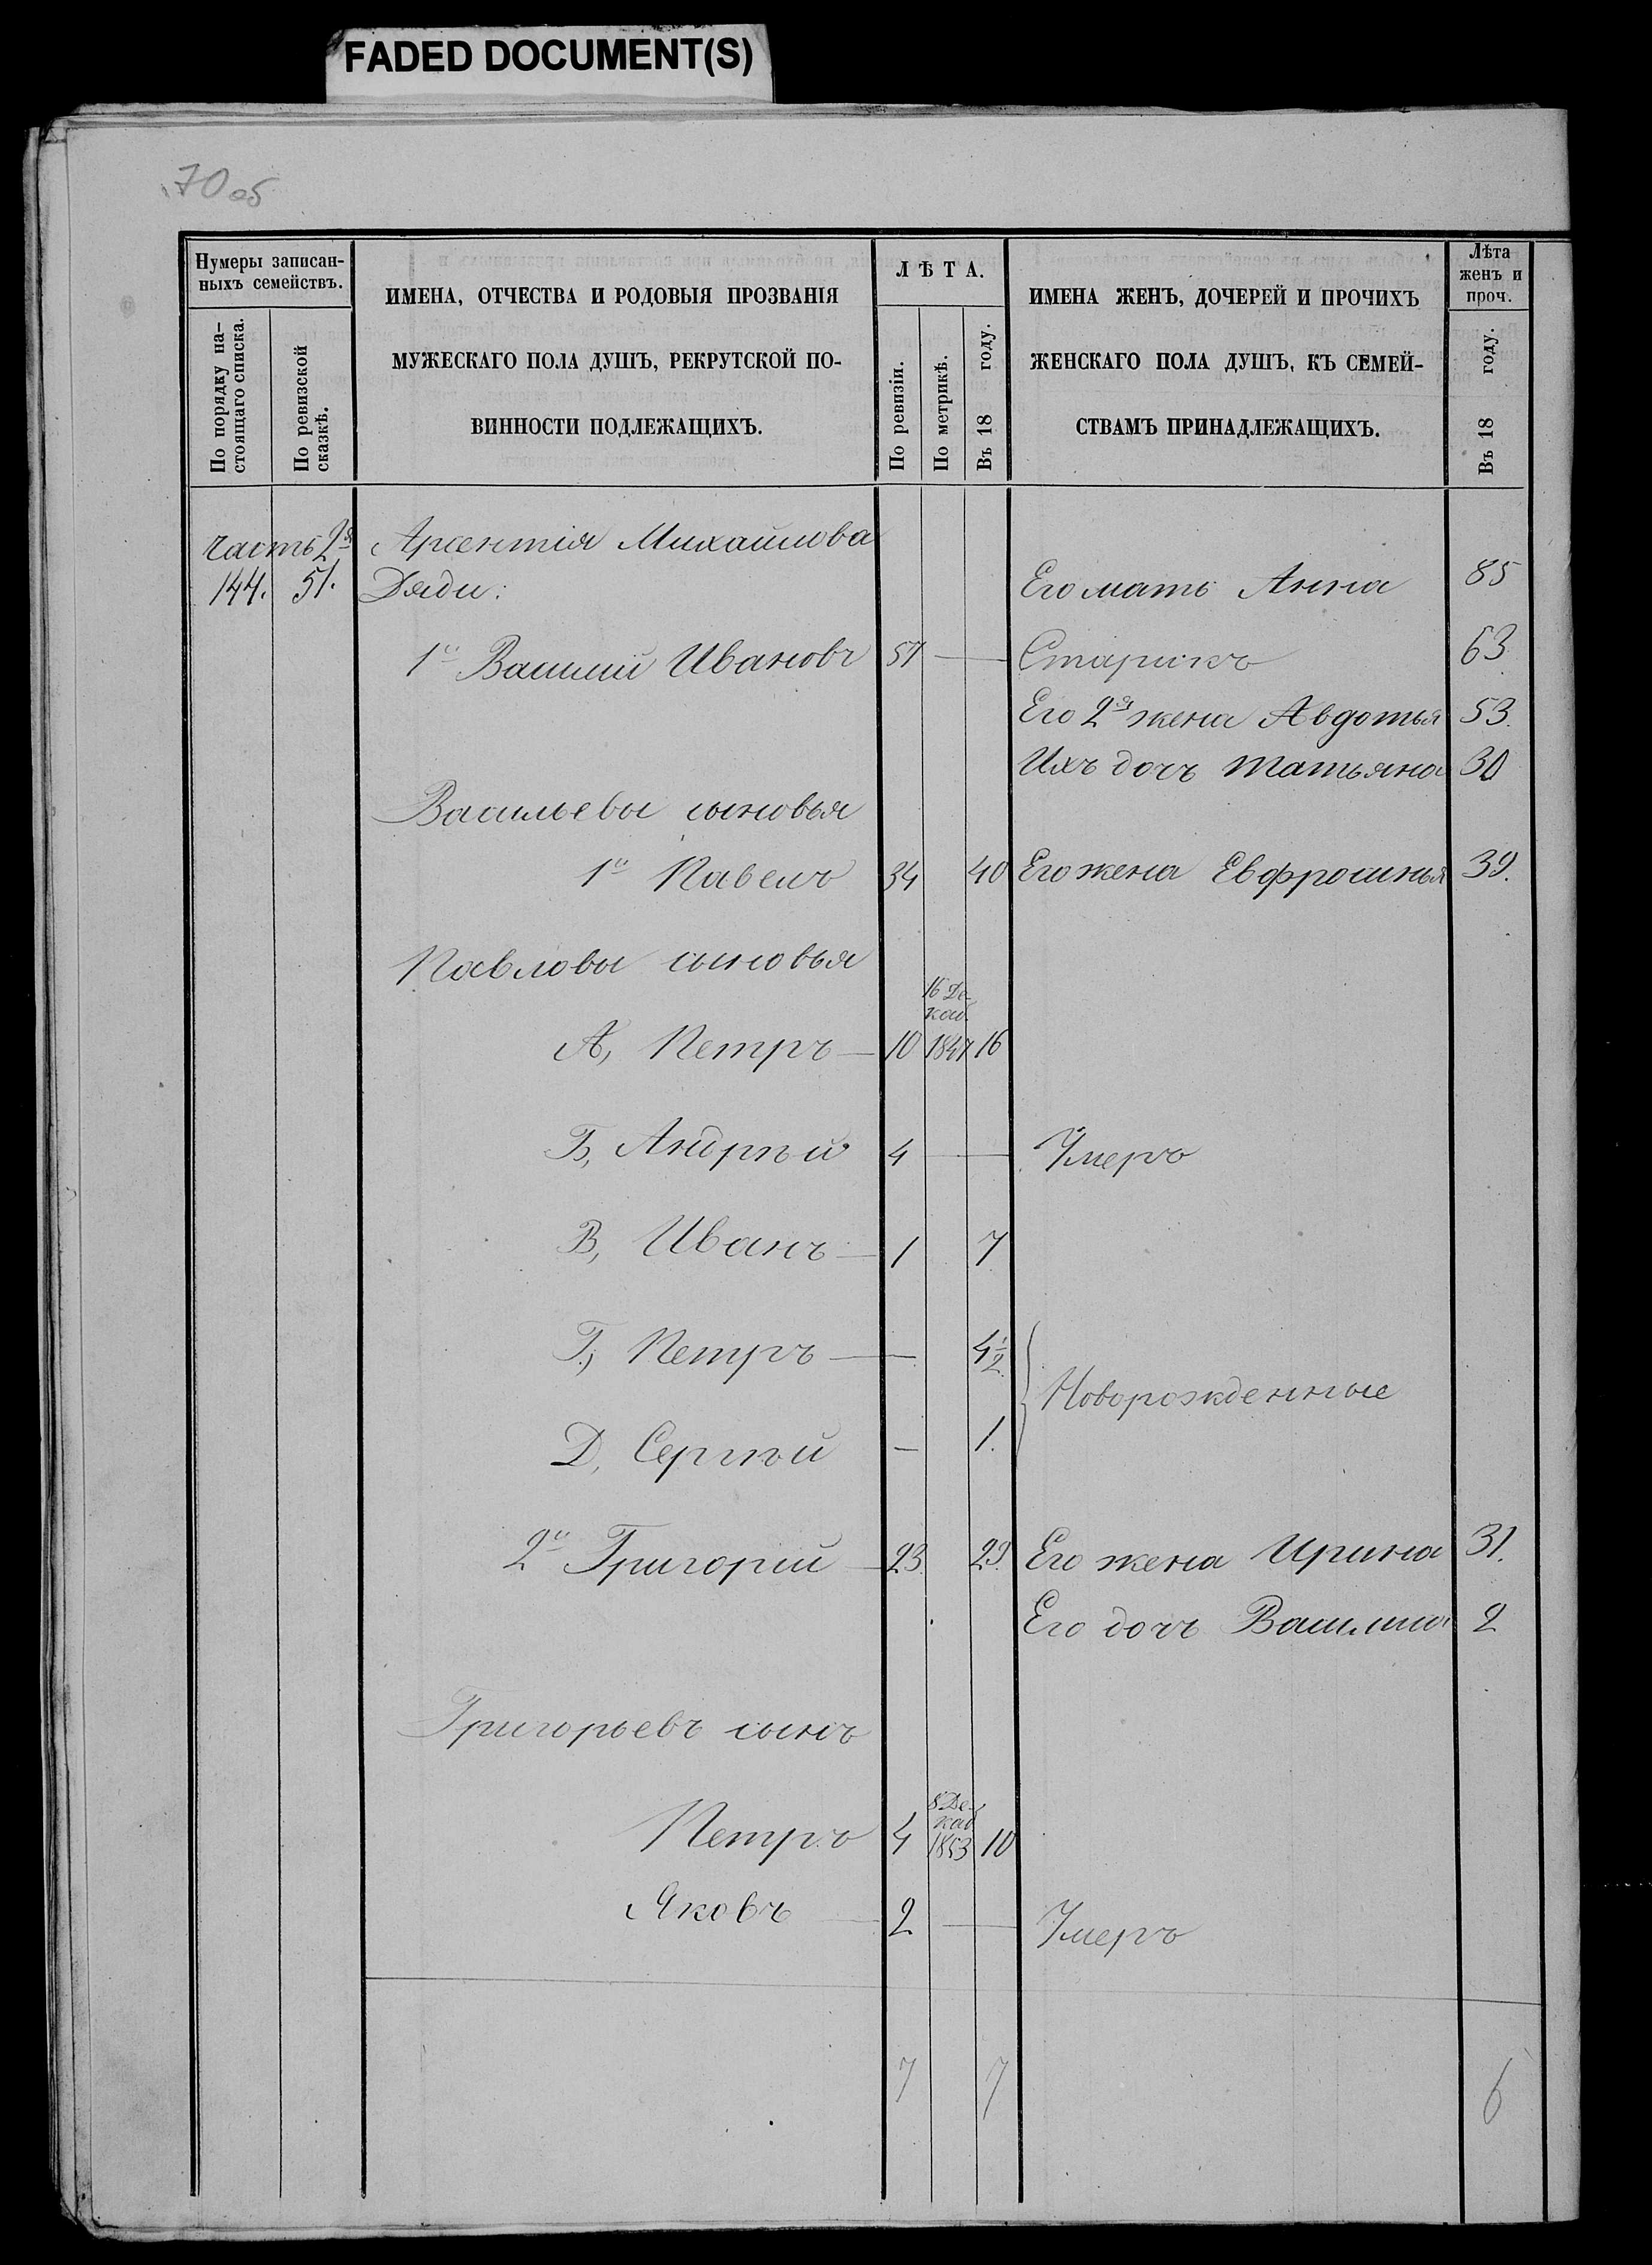 FADED DOCUMENT(S)
70 об
Нумеры записан-
ныхъ семействъ.
По порядку на-
стоящаго списка.
По ревизской
сказкѣ.
ИМЕНА, ОТЧЕСТВА И РОДОВЫЯ ПРОЗВАНІЯ
МУЖЕСКАГО ПОЛА ДУШЪ, РЕКРУТСКОЙ ПО-
ВИННОСТИ ПОДЛЕЖАЩИХЪ.
ЛѢТА.
По ревизіи.
По метрикѣ.
Въ 18 году.
ИМЕНА ЖЕНЪ, ДОЧЕРЕЙ И ПРОЧИХЪ
ЖЕНСКАГО ПОЛА ДУШЪ, КЪ СЕМЕЙ-
СТВАМЪ ПРИНАДЛЕЖАЩИХЪ.
Лѣта
женъ и
проч.
Въ 18 году.
Часть 2я Арсентія Михайлова
144. 51. Дяди: Его мать Анна 85
1й Василий Ивановъ 57 — Старикъ 63
Его 2я жена Авдотья 53.
Ихъ дочъ Татьяна 30
Васильевы сыновья
1й Павелъ 34 40 Его жена Евфросинья 39.
Павловы сыновья
16 Де-
каб.
А, Петръ — 10 1847 16
Б, Андрѣй 4 — Умеръ
В, Иванъ — 1 7
Г, Петръ — 4 1/2
Новорожденные
Д, Сергѣй — 1.
2й Григорій 23. 29. Его жена Ирина 31.
Его дочъ Васлиса 2
Григорьевъ сынъ
8 Де-
каб
Петръ 4 1853 10
Яковъ — 2 — Умеръ
7 7 6